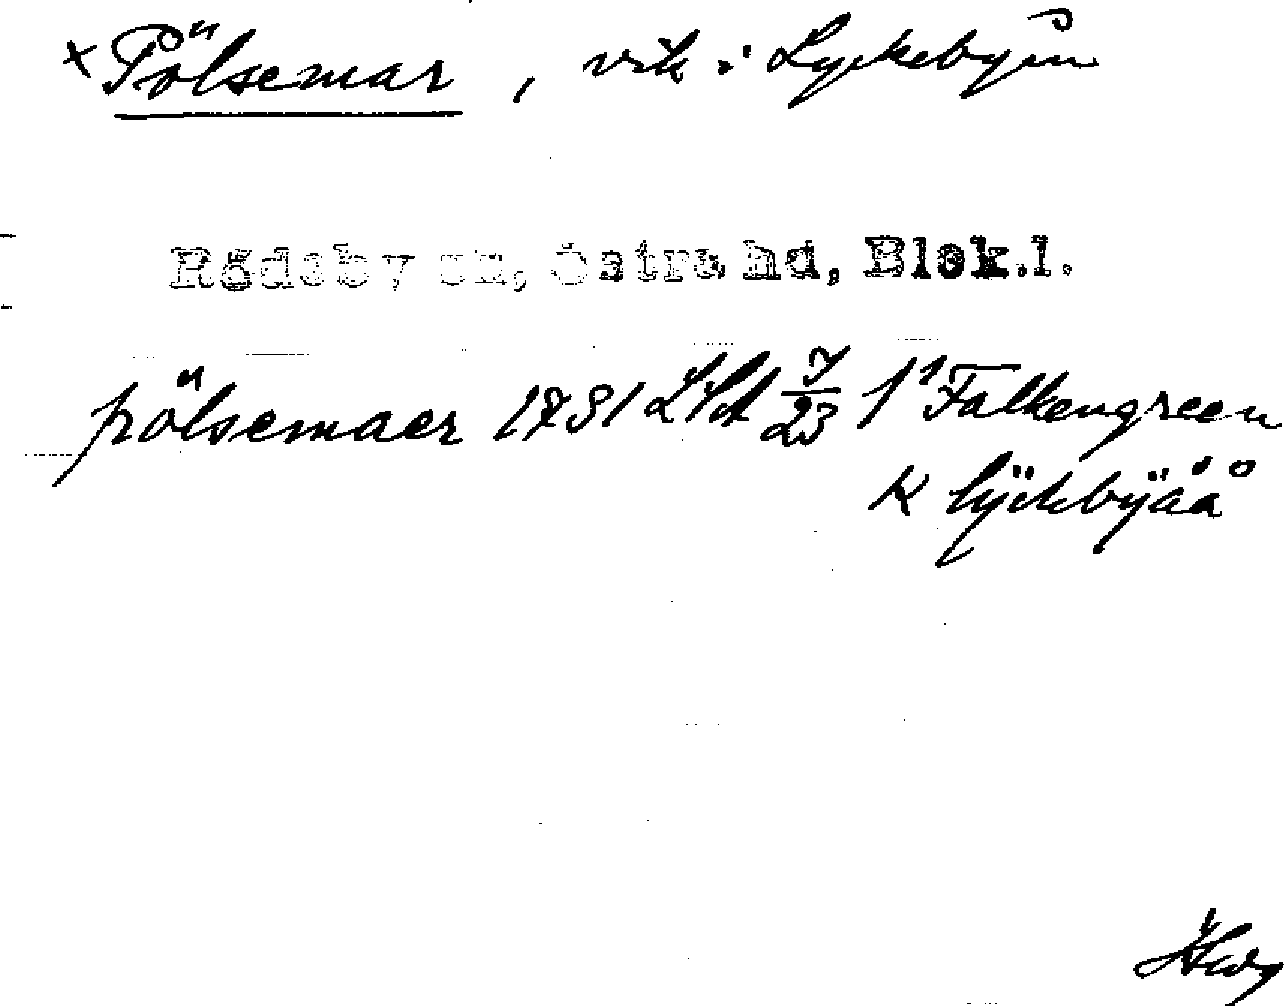 × Pölsemar, vik i Lyckebyån
Rödeby sn, Östra hd, Blek.l.
pölsemaer 1731 LSA I/23 1¹ Falkengreen
K lÿckbÿåå